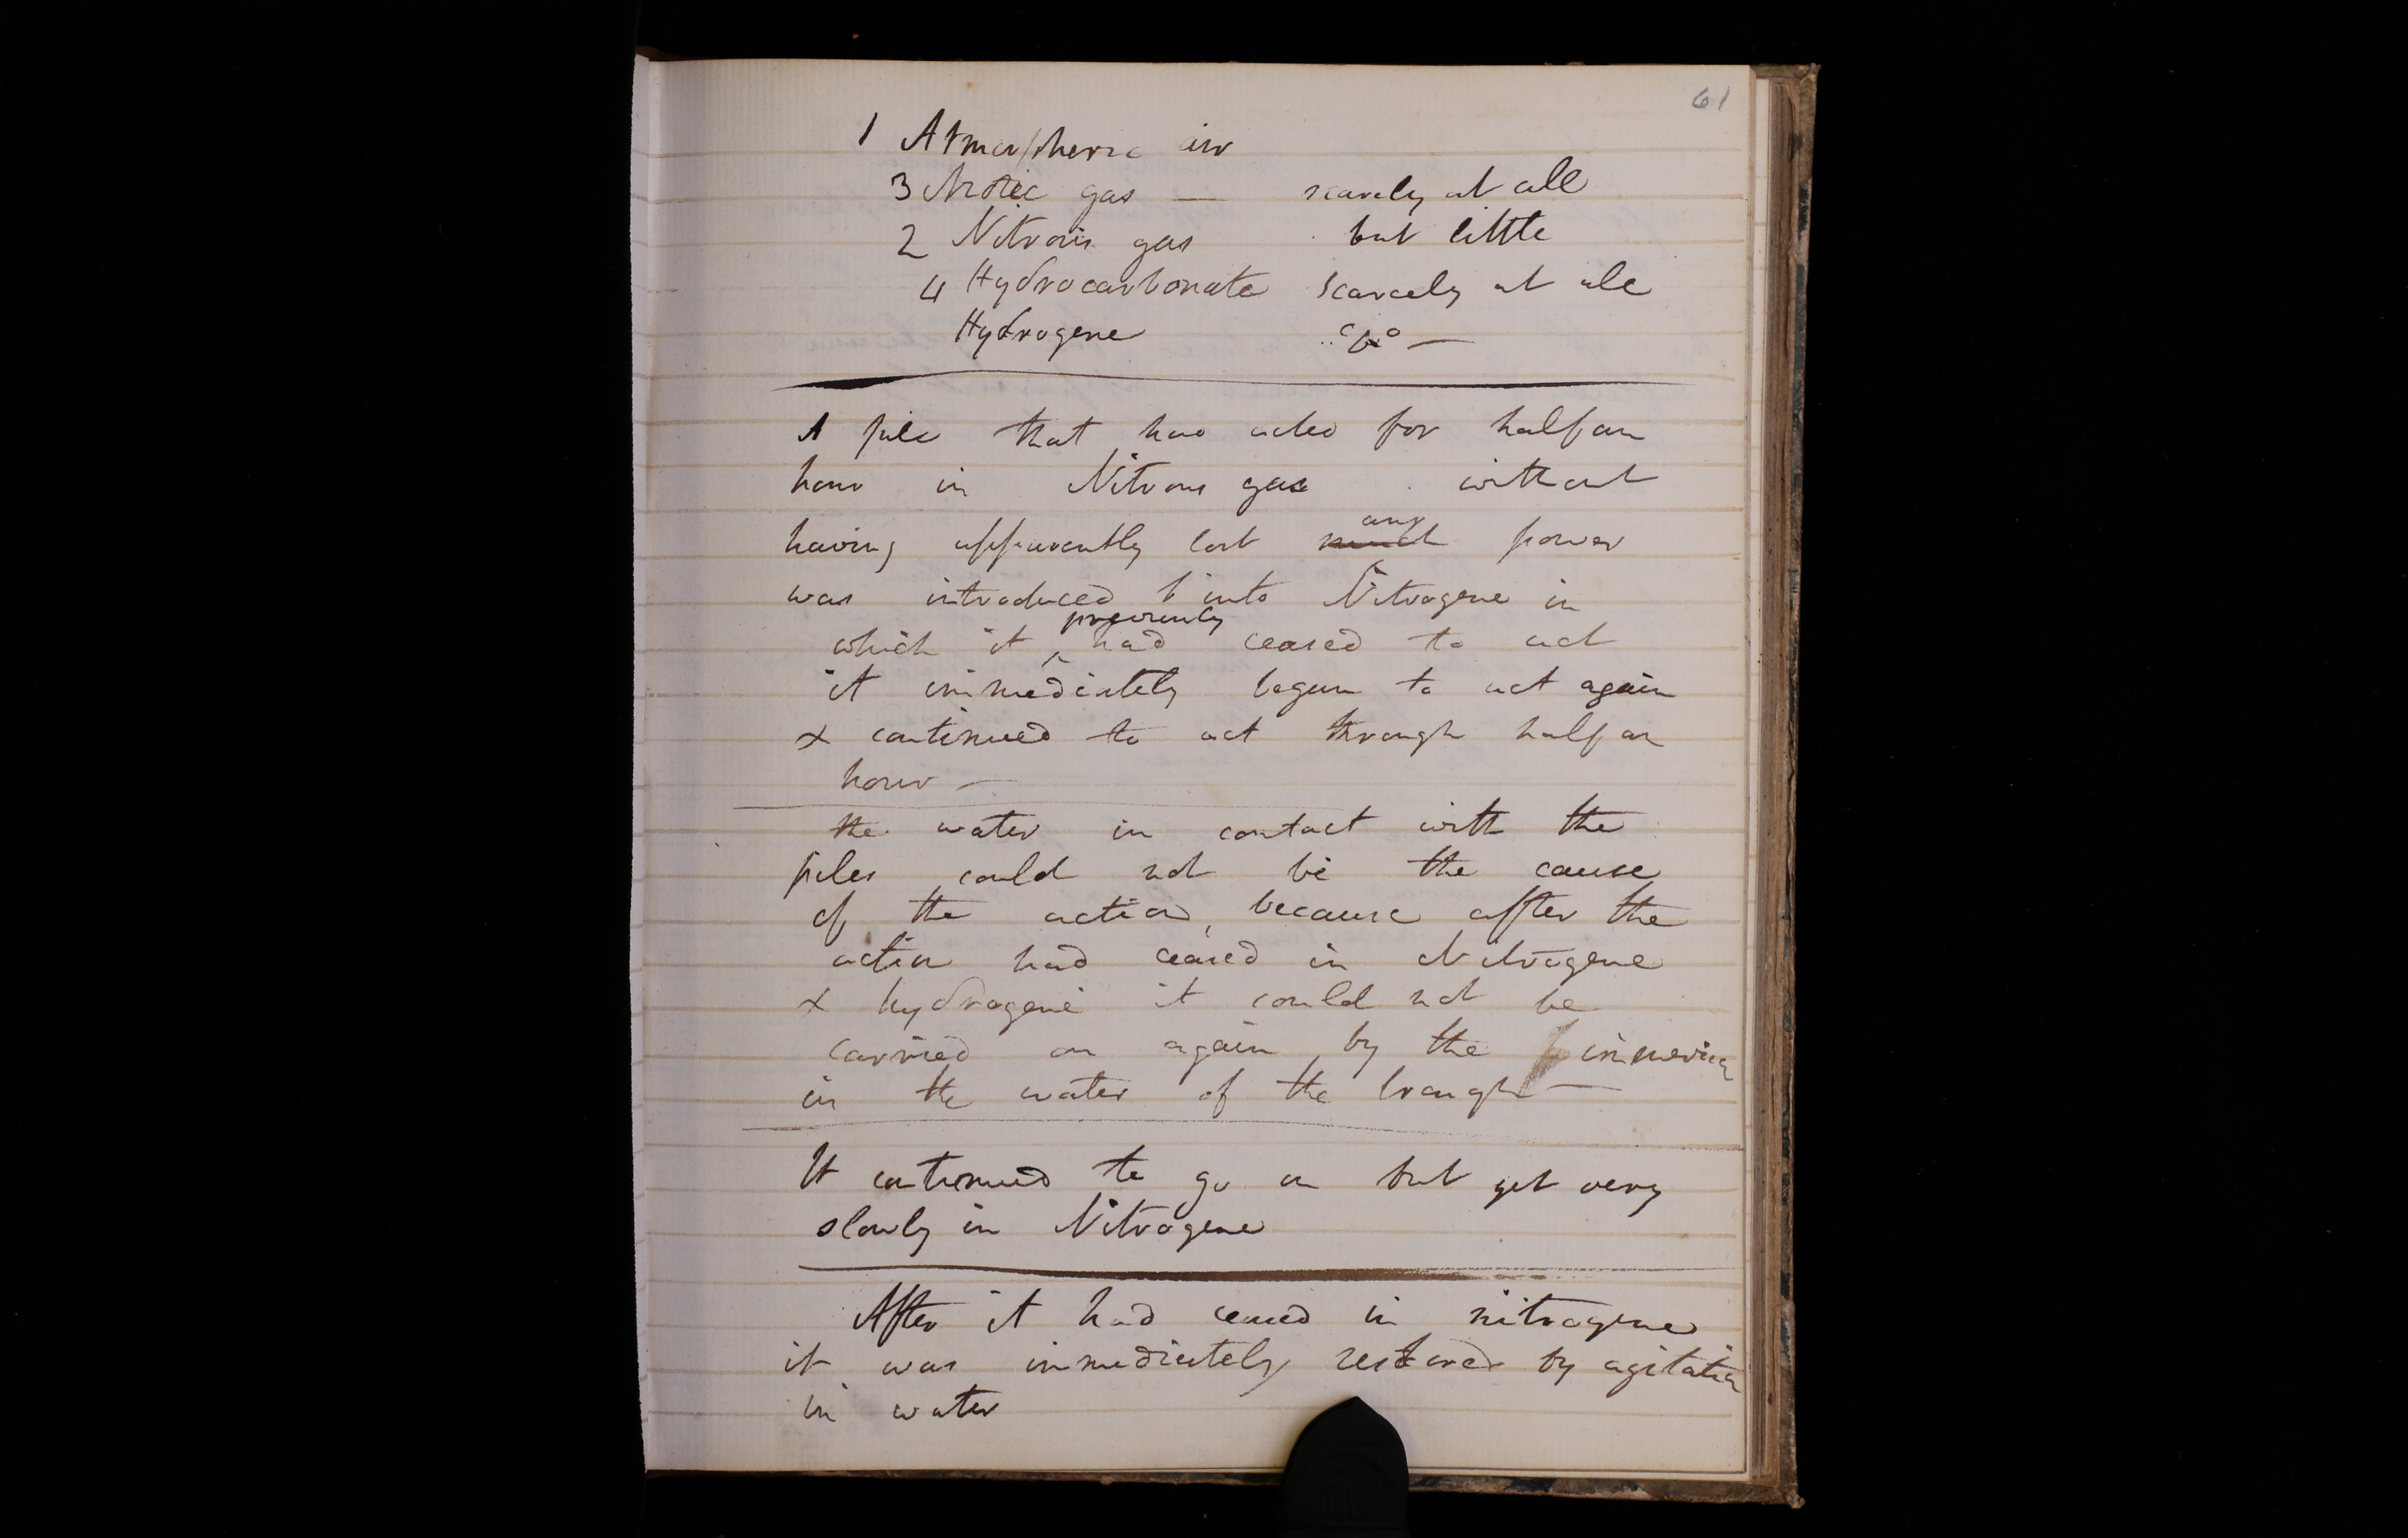 61
1 Atmospheric air
3 Azotic gas — scarcely at all
2 Nitrous gas but little
4 Hydrocarbonate scarcely at all
Hydrogene do —
A pile that had acted for half an
hour in Nitrous gas without
having apparently lost much any power
was introduced into Nitrogene in
which it previously had ceased to act
it immediately began to act again
& continued to act through half an
hour —
the water in contact with the
piles could not be the cause
of the action, because after the
action had ceased in Nitrogene
& hydrogene it could not be
carried on again by the immersion
in the water of the trough —
It continued to go on but yet very
slowly in Nitrogene
After it had ceased in nitrogene
it was immediately restored by agitation
in water